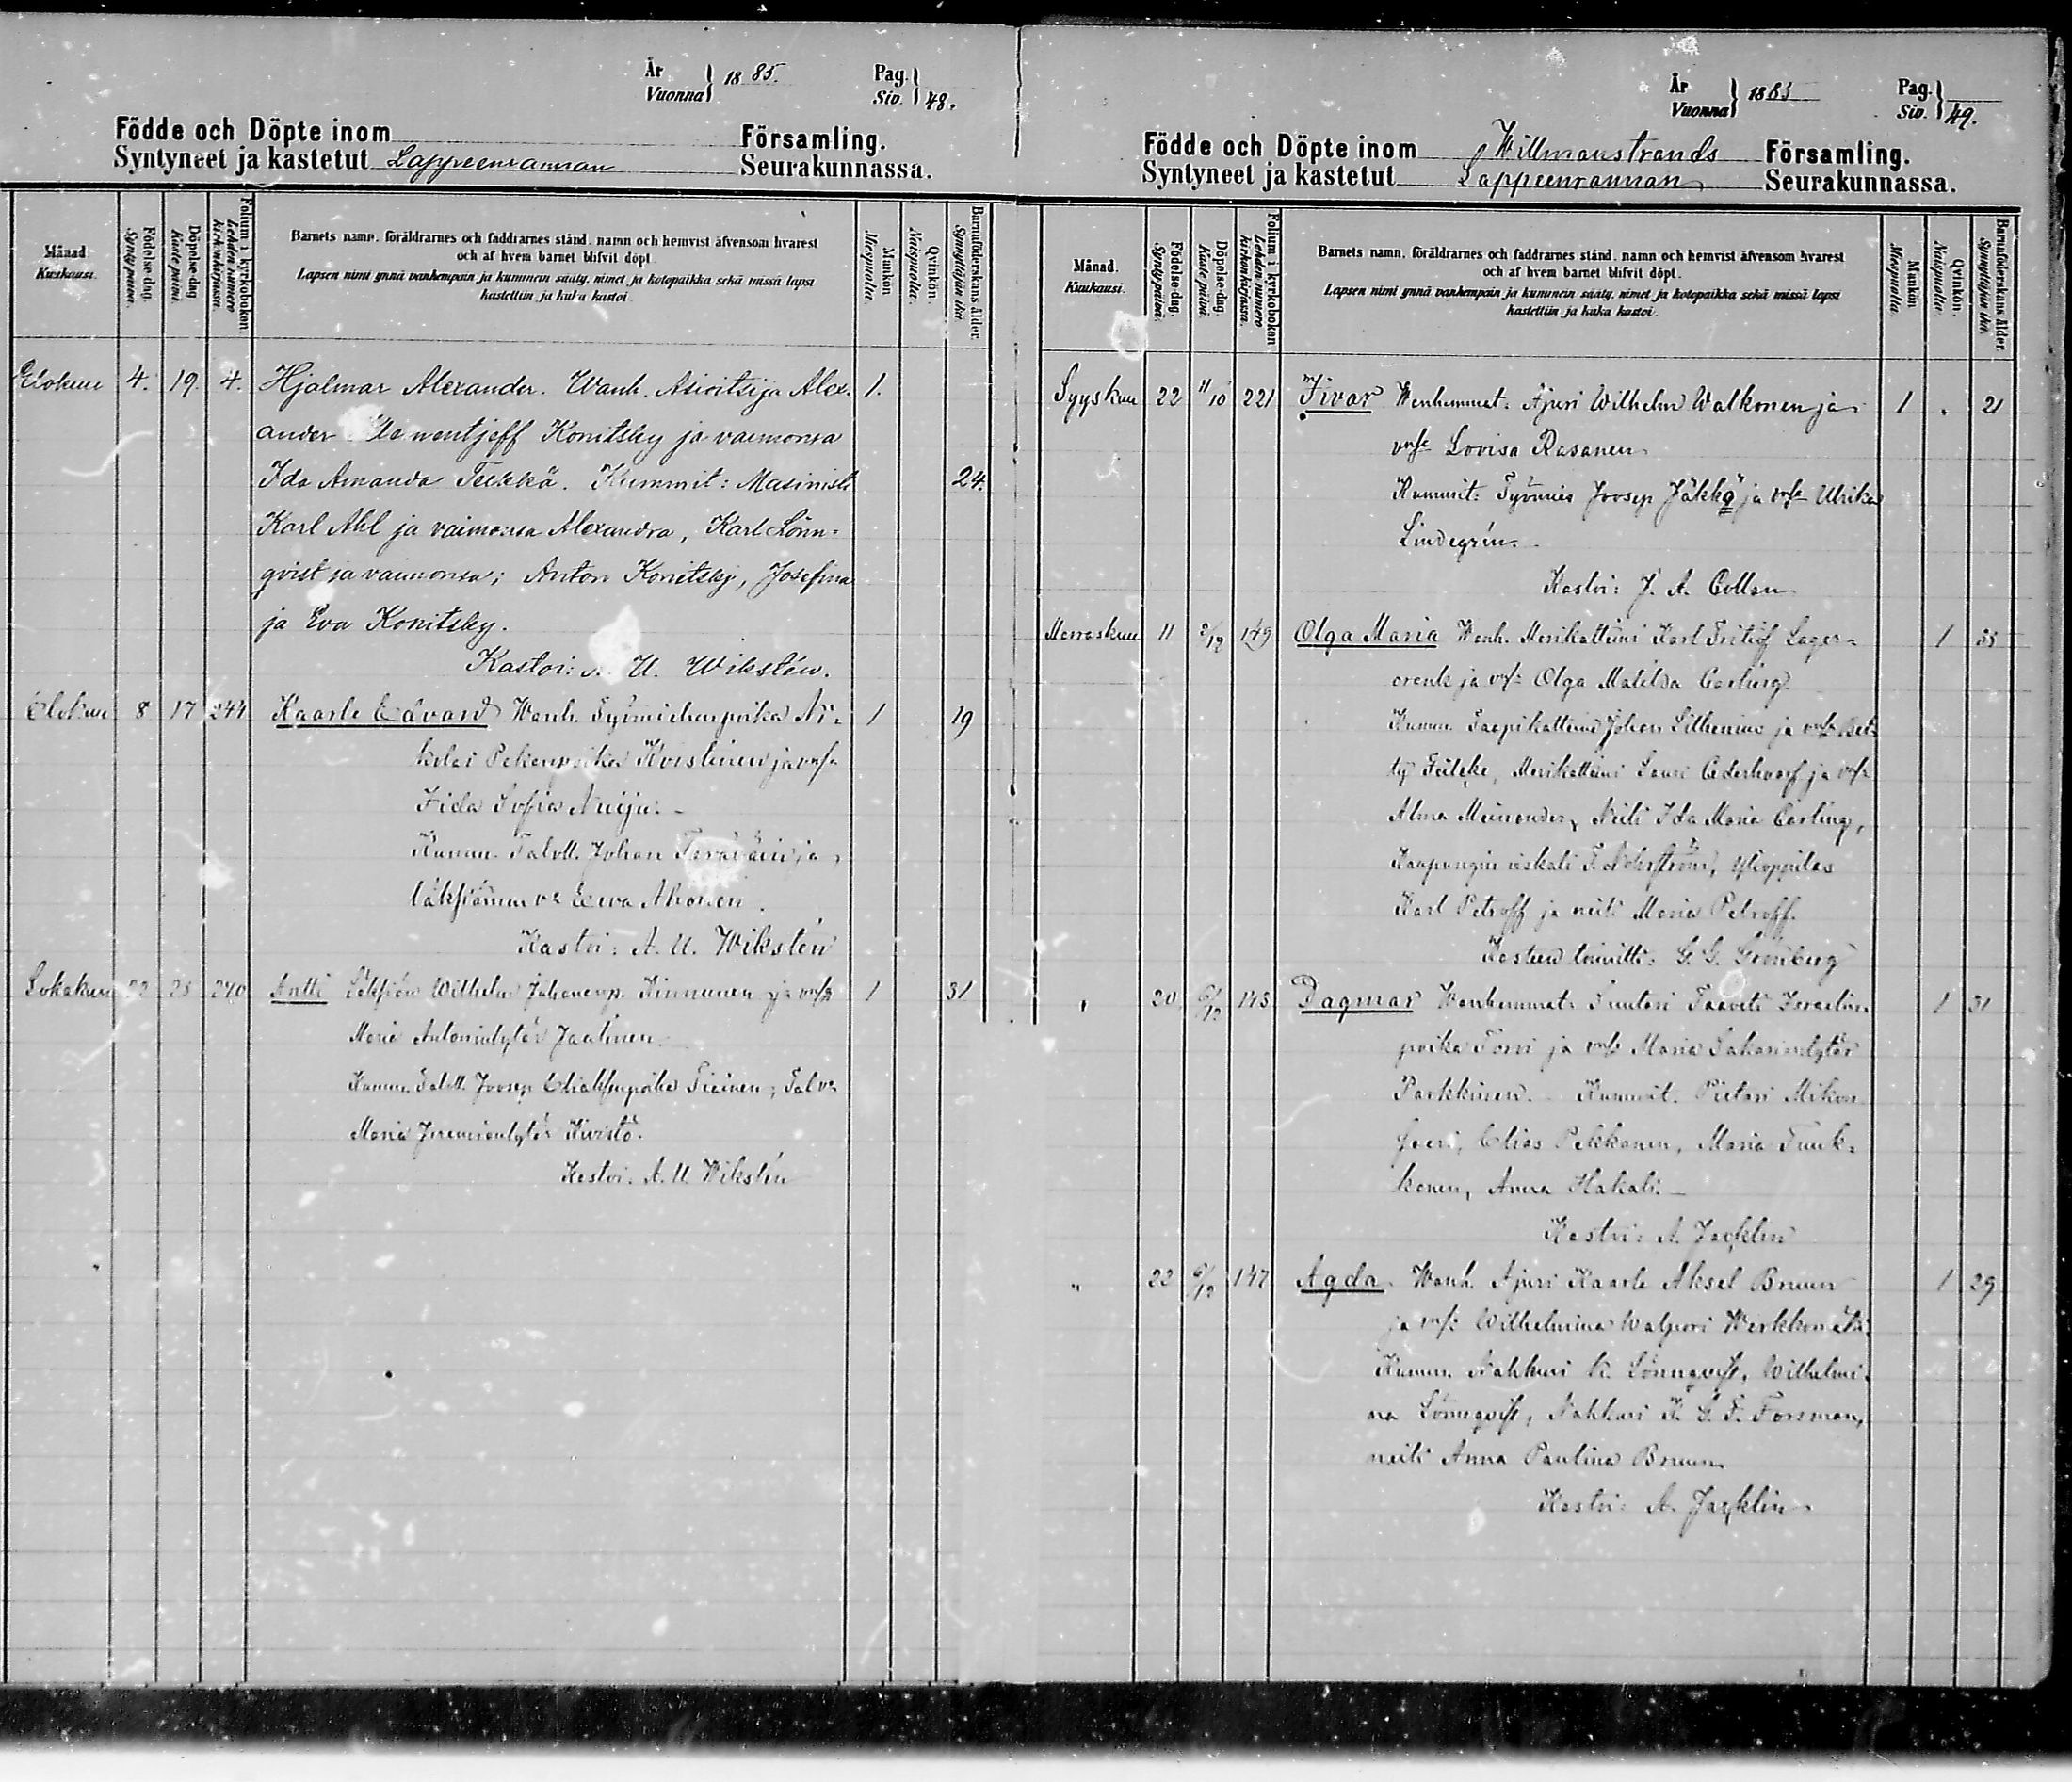 År
Vuonna 1885.
Pag.
Siv. 48.
Födde och Döpte inom Församling.
Syntyneet ja kastetut Lappeenrannan Seurakunnassa.
Månad.
Kuukausi.
Födelse-dag.
Syntypäivä.
Döpelse-dag.
Kaste päivä.
Folium i kyrkoboken
Lehden numero
kirkonkirjassa.
Barnets namn, föräldrarnes och faddrarnes stånd, namn och hemvist äfvensom hvarest
och af hvem barnet blifvit döpt.
Lapsen nimi ynnä vanhempain ja kummein sääty, nimet ja kotopaikka sekä missä lapsi
kastettiin ja kuka kastoi.
Mankön
Miespuolia.
Qvinkön.
Naispuolia.
Barnaföderskans ålder.
Synnyttäjän ikä.
Elokuu 4. 19. 4. Hjalmar Alexander. Wanh. Asioitsija Alex- 1.
ander Konitsky ja vaimonsa
Ida Amanda Teikkä. Kummit: Masinisti 24.
Karl Ahl ja vaimonsa Alexandra, Karl Lönn-
qvist ja vaimonsa; Anton Konitsky, Josefina
ja Eva Konitsky.
Kastoi: A. U. Wikstén.
Elokuu 8 17 244 Kaarle Edvard Wanh. Työmiehenpoika Ni- 1 19
kolai Pekanpoika ja
Iida Sofia Nuija.
Kumm. Taloll. Johan ja
Eeva Ahonen.
Kastoi: A. U. Wikstén
Lokakuu 22 25 240 Antti Wilhelm Juhananp. Kinnunen ja 1 31
Maria Antonintytär Jaatinen.
Kumm. Taloll. Joosep Tiainen;
Maria Jeremiantytär Kivistö.
Kastoi: A. U. Wikstén
År
Vuonna 1885
Pag.
Siv. 49.
Födde och Döpte inom Willmanstrands Församling.
Syntyneet ja kastetut Lappeenrannan Seurakunnassa.
Månad.
Kuukausi.
Födelse-dag.
Syntypäivä.
Döpelse-dag.
Kaste päivä.
Folium i kyrkoboken
Lehden numero
kirkonkirjassa.
Barnets namn, föräldrarnes och faddrarnes stånd, namn och hemvist äfvensom hvarest
och af hvem barnet blifvit döpt.
Lapsen nimi ynnä vanhempain ja kummein sääty, nimet ja kotopaikka sekä missä lapsi
kastettiin ja kuka kastoi.
Mankön
Miespuolia.
Qvinkön.
Naispuolia.
Barnaföderskans ålder.
Synnyttäjän ikä.
Syyskuu 22 11/10 221 Iivar Wanhemmat: Ajuri Wilhelm Walkonen ja 1 21
Lovisa Rasanen
Kummit: Työmies Joosep Jäkkö ja Ulrika
Lindegrén.
Kastoi: J. A. Collan
Marraskuu 11 2/12 149 Olga Maria Wanh. Merikatteini Karl Fritiof Lager- 1
crantz ja Olga Matilda Carling.
Kumm. Johan Lithenius ja
Merikatteini Lauri ja
Alma Meinander, Neiti Ida Maria Carling,
Kaupungin viskali ylioppilas
Karl Petroff ja neiti Maria Petroff.
Kasteen toimitti: G. G. Grönberg
" 20 6/12 143 Dagmar Wanhemmat: Suutari Taaveti Israelin- 1 31
poika Torvi ja Maria Sakarintytär
Parkkinen. Kummit. Pietari Mikon-
Elias Pekkanen, Maria Tuuk-
konen, Anna Hakali.
Kastoi: A. Jacklin
" 22 6/12 147 Agda. Wanh. Ajuri Kaarle Aksel Bruun 1 29
ja Wilhelmina Walpuri
Kumm. Nahkuri K. Lönnqvist, Wilhelmi-
na Lönnqvist, Nahkuri K. G. F. Forsman,
neiti Anna Paulina Bruun
Kastoi: A. Jacklin